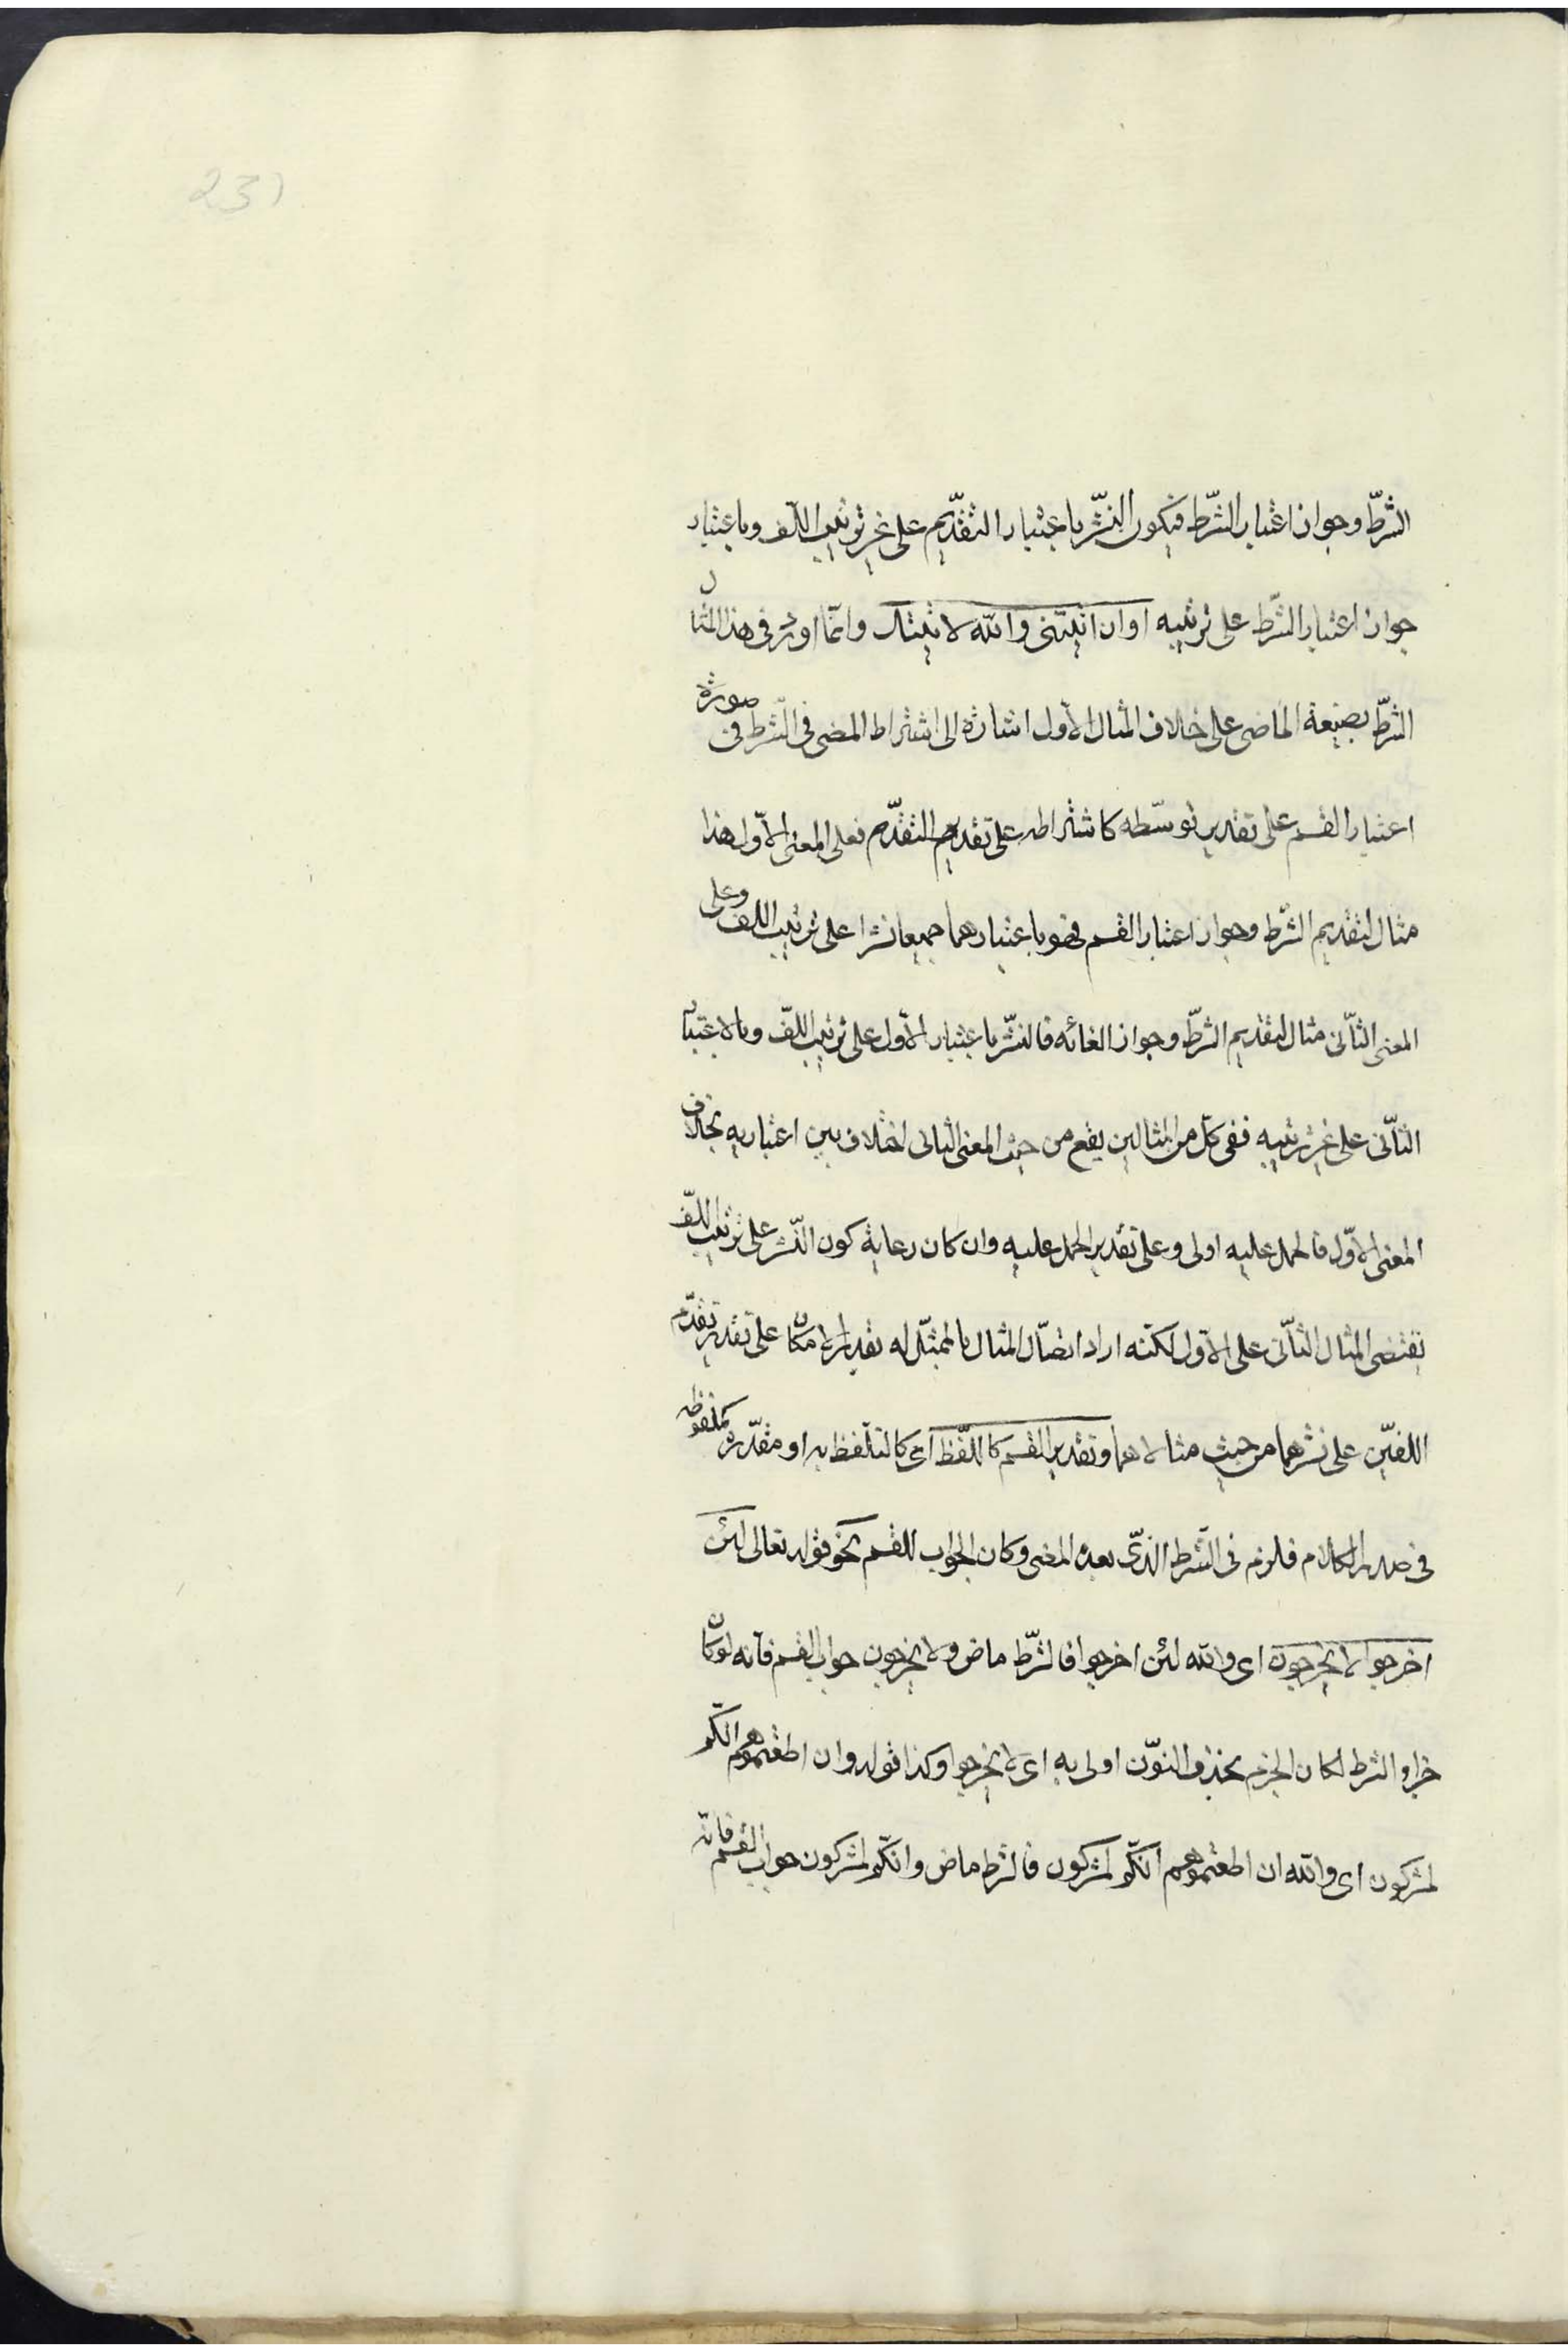 231
الشرّط وجواز اعتبار الشّرط فيكون النّشر باعتبار التقدّيم على غير ترتيب اللّف وباعتبار
جواز اعتبار الشّرط على ترتيبه او ان اتيتنى والله لاتيتك وانمّا اورد فى هذا المثال
الشرّط بصيغة الماضى على خلاف المثال الاول اشارة الى اشتراط المضى فى الشّرط فى صورة
اعتبار القسم على تقدير توسّطه كاشتراطه على تقديم التقدّم فعلى المعنى الاوّل هذا
مثال لتقديم الشّرط وجواز اعتبار القسم فهو باعتبارهما جميعا نشرا على ترتيب اللف وعلى
المعنى الثاّنى مثال لتقديم الشرّط وجواز الغائه فالنشّر باعتبار الاول على ترتيب اللفّ وبالاعتبار
الثاّنى على غير ترتيبه ففى كل من المثالين يقع من حيث المعنى الثانى اختلاف بين اعتباريه بخلاف
المعنى الاوّل فالحمل عليه اولى وعلى تقدير الحمل عليه وان كان رعاية كون النّشر على ترتيب اللفّ
تقتضى المثال الثاّنى على الاول لكنّه اراد اتصّال المثال بالممثّل له بقدر الامكان على تقدير تقدّم
اللفيّن على نشرهما من حيث مثالاهما وتقدير القسم كاللّفظ اى كالتلّفظ به او مقدّره كملفوظه
فى صدر الكلام فلزم فى الشّرط الذىّ بعده المضى وكان الجواب للقسم نحو قوله تعالى لئن
اخرجوا لا يخرجون اى والله لئن اخرجوا فالشرّط ماض ولا يخرجون جواب القسم فانّه لو كان
جزاء الشرط لكان الجزم بحذف النوّن اولى به اى لا يخرجوا وكذا قوله وان اطعتموهم انكّم
لمشركون اى والله ان اطعتموهم انكّم لمشركون فالشرط ماض وانكّم لمشركون جواب القسم فانه